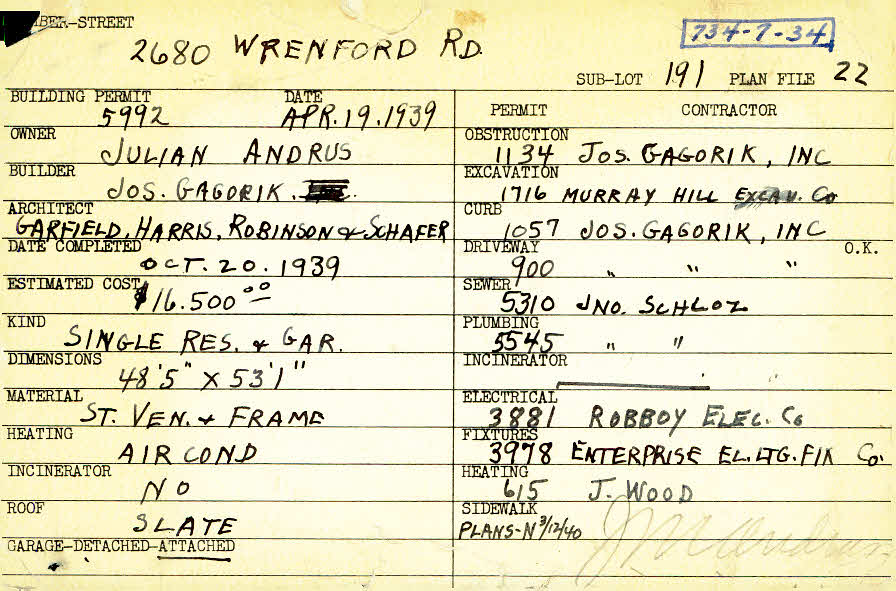 BER-STREET
2680 WRENFORD RD.
734-7-34
SUB-LOT 191 PLAN FILE 22
BUILDING PERMIT DATE
5992 APR. 19. 1939
OWNER
JULIAN ANDRUS
BUILDER
JOS. GAGORIK.
ARCHITECT
GARFIELD, HARRIS, ROBINSON & SCHAFER
DATE COMPLETED
OCT. 20. 1939
ESTIMATED COST
$16.500 00
KIND
SINGLE RES. & GAR.
DIMENSIONS
48'5" X 53'1"
MATERIAL
ST. VEN. & FRAME
HEATING
AIR COND
INCINERATOR
NO
ROOF
SLATE
GARAGE-DETACHED-ATTACHED
PERMIT CONTRACTOR
OBSTRUCTION
1134 JOS. GAGORIK, INC
EXCAVATION
1716 MURRAY HILL EXCAV. Co
CURB
1057 JOS. GAGORIK, INC
DRIVEWAY O.K.
900 " " "
SEWER
5310 JNO. SCHLOZ
PLUMBING
5545 " "
INCINERATOR
ELECTRICAL
3881 ROBBOY ELEC. Co
FIXTURES
3978 ENTERPRISE EL. LTG. FIX Co.
HEATING
615 J. WOOD
SIDEWALK
PLANS-N 3/12/40